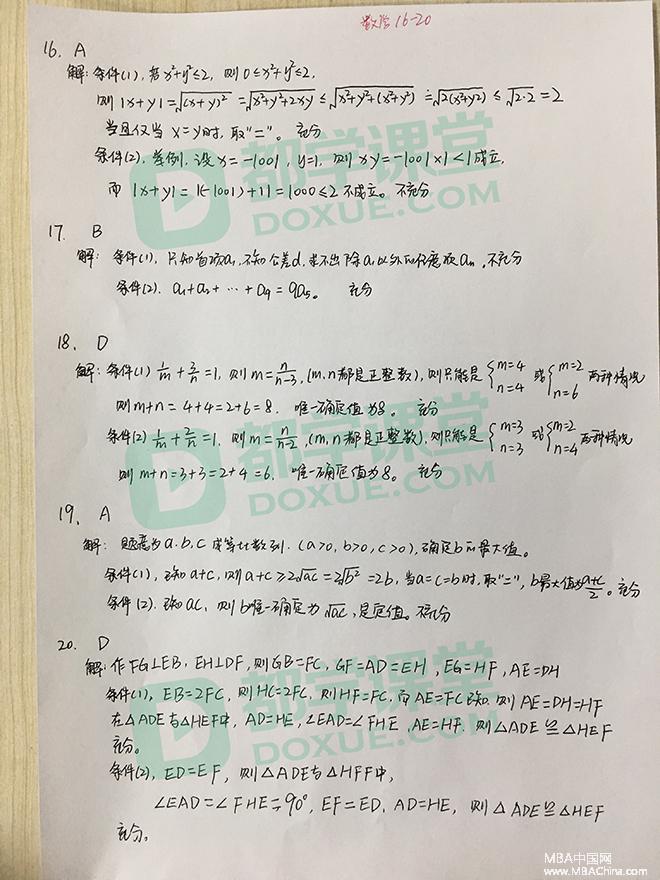 数学16-20
16. A
解: 条件(1), 若x²+y²≤2, 则0≤x²+y²≤2,
则|x+y|=√(x+y)²=√x²+y²+2xy≤√x²+y²+(x²+y²)=√2(x²+y²)≤√2·2=2
当且仅当x=y时, 取"="。充分
条件(2), 举例, 设x=-1001, y=1, 则xy=-1001×1<1成立,
而|x+y|=|(-1001)+1|=1000≤2不成立。不充分
都学课堂
DOXUE.COM
17. B
解: 条件(1), 只知首项a₁, 不知公差d, 求不出除a₁以外的任意项aₙ, 不充分
条件(2). a₁+a₂+…+a₉=9a₅。 充分
18. D
解: 条件(1) 1/m+3/n=1, 则m=n/(n-3), (m,n都是正整数), 则只能是{m=4 n=4 或{m=2 n=6 两种情况
则m+n=4+4=2+6=8. 唯一确定值为8。充分
都学课堂
条件(2) 1/m+2/n=1, 则m=n/(n-2), (m,n都是正整数), 则只能是{m=3 n=3 或{m=2 n=4 两种情况
则m+n=3+3=2+4=6. 唯一确定值为8。充分
DOXUE.COM
19. A
解: 题意为a.b,c成等比数列. (a>0, b>0, c>0), 确定b的最大值。
条件(1), 已知a+c, 则a+c≥2√ac=2√b²=2b, 当a=c=b时, 取"=", b最大值为(a+c)/2。充分
条件(2). 已知ac, 则b唯一确定为√ac, 是定值。不充分
20. D
解: 作FG⊥EB, EH⊥DF, 则GB=FC, GF=AD=EH, EG=HF, AE=DH
条件(1), EB=2FC, 则HC=2FC, 则HF=FC, 而AE=FC已知, 则AE=DH=HF
在△ADE与△HEF中, AD=HE, ∠EAD=∠FHE, AE=HF. 则△ADE≌△HEF
充分。
都学课堂
DOXUE.COM
条件(2), ED=EF, 则△ADE与△HFF中,
∠EAD=∠FHE=90°, EF=ED, AD=HE, 则△ADE≌△HEF
充分。
MBA中国网
www.MBAChina.com